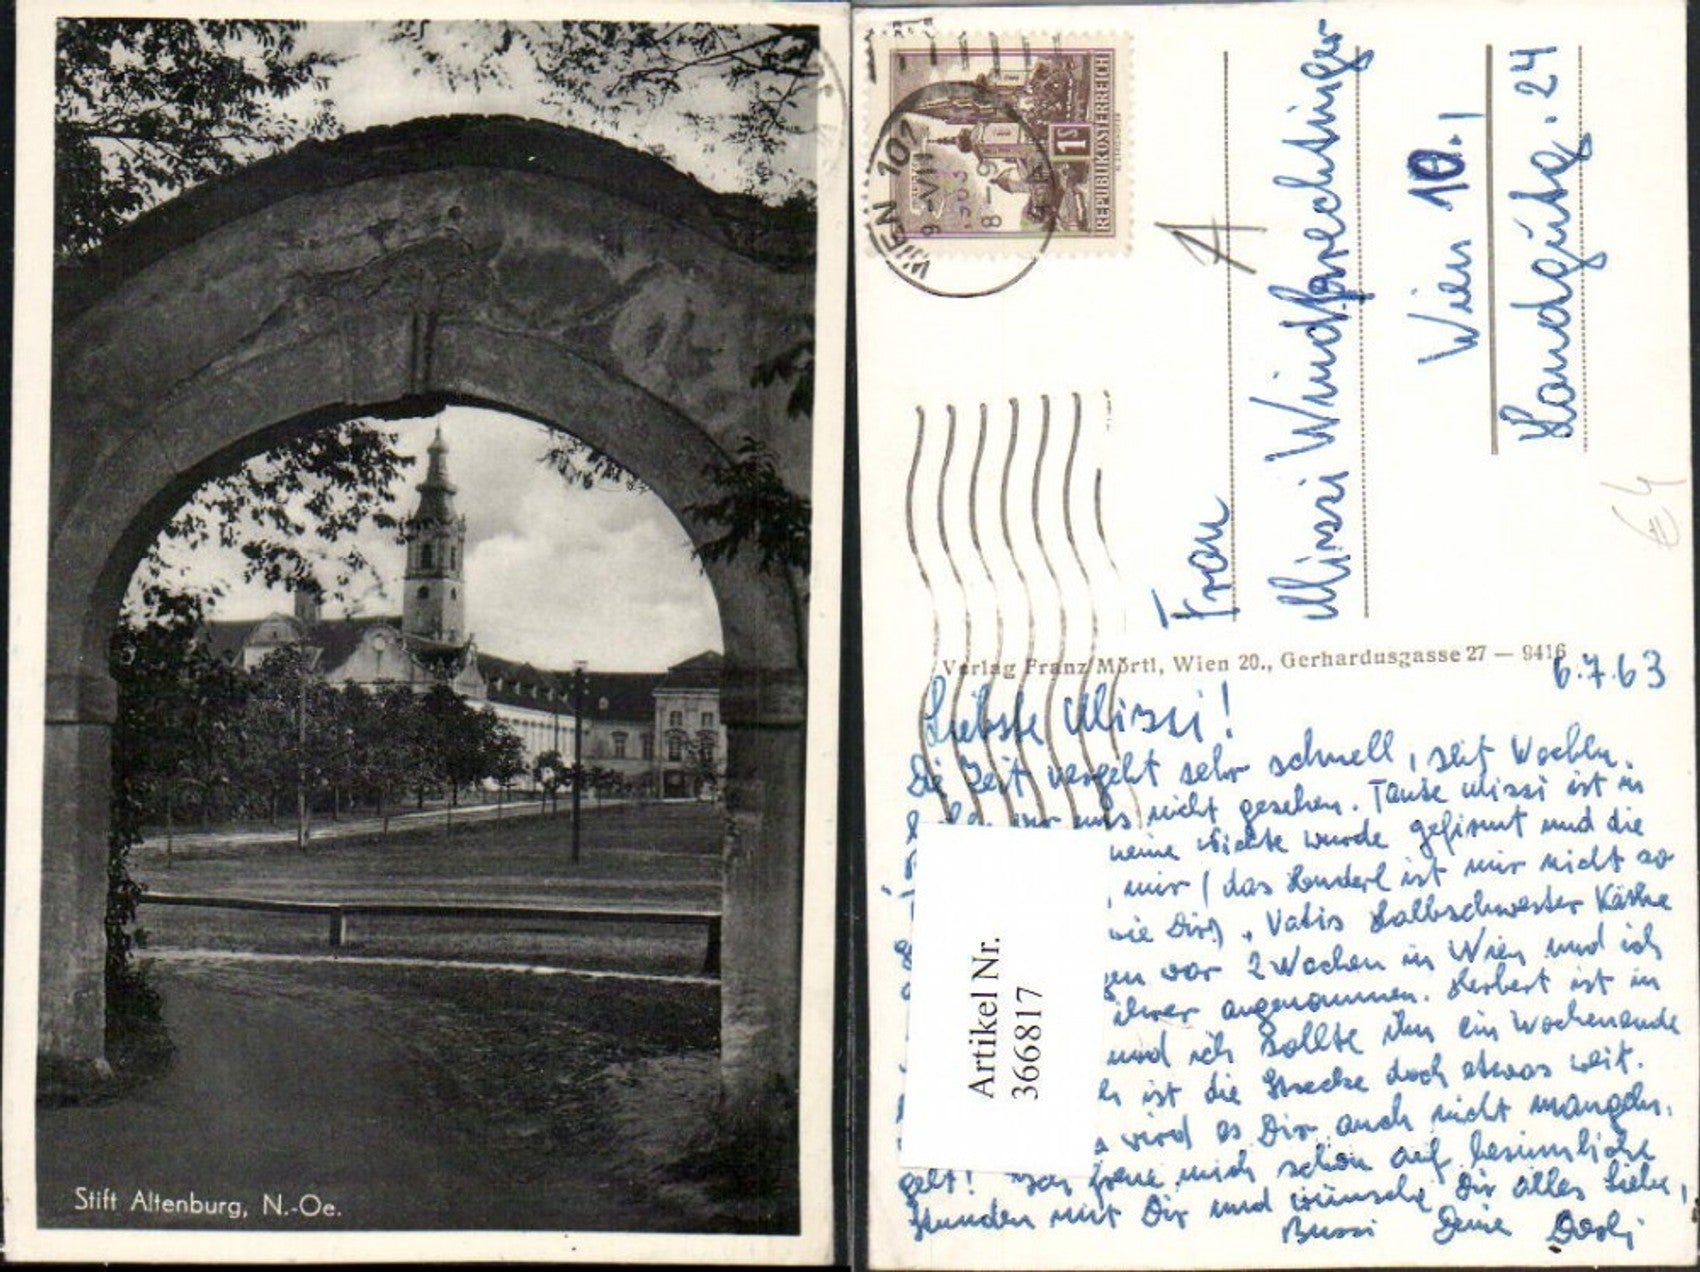 Stift Altenburg, N.-Oe.
WIEN 101
9.-VII
8-9
1S
REPUBLIK ÖSTERREICH
Frau
Missi
Wien 10.,
24
€ 4
Verlag Franz Mörtl, Wien 20., Gerhardusgasse 27 — 9416
6.7.63
Liebste Missi!
Die Zeit vergeht sehr schnell, seit Wochen
wir uns nicht gesehen. Tante Missi ist in
meine Nichte wurde gefirmt und die
mir (das Hunderl ist mir nicht so
wie Dir). Vatis Halbschwester Käthe
gen war 2 Wochen in Wien und ich
ihrer angenommen. Herbert ist in
und ich sollte ihn ein Wochenende
ist die Strecke doch etwas weit.
wird es Dir auch nicht mangeln,
gelt! Ich freue mich schon auf besinnliche
Stunden mit Dir und wünsche Dir alles Liebe,
Bussi Deine
Artikel Nr.
366817